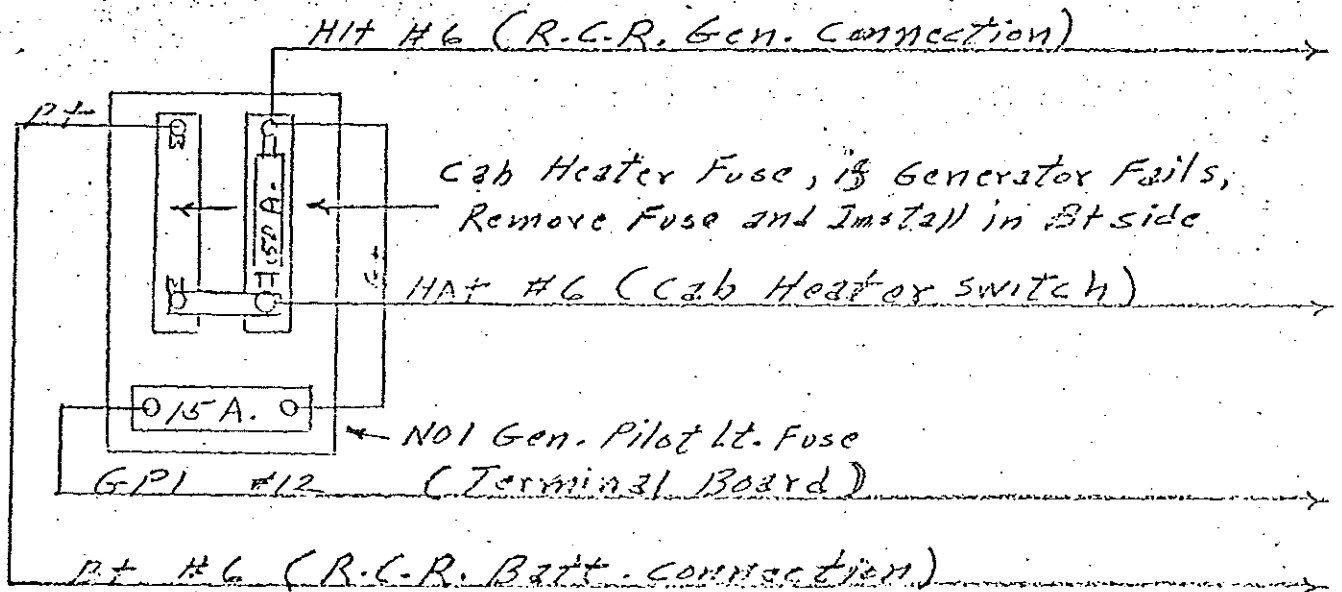 H1+ #6 (R.C.R. Gen. Connection)
P+
Cab Heater Fuse, if Generator Fails,
Remove Fuse and Install in B+ side
150 A.
HA+ #6 (Cab Heater Switch)
15 A.
NO1 Gen. Pilot Lt. Fuse
(Terminal Board)
GP1 #12
P+ #6 (R.C.R. Batt. connection)